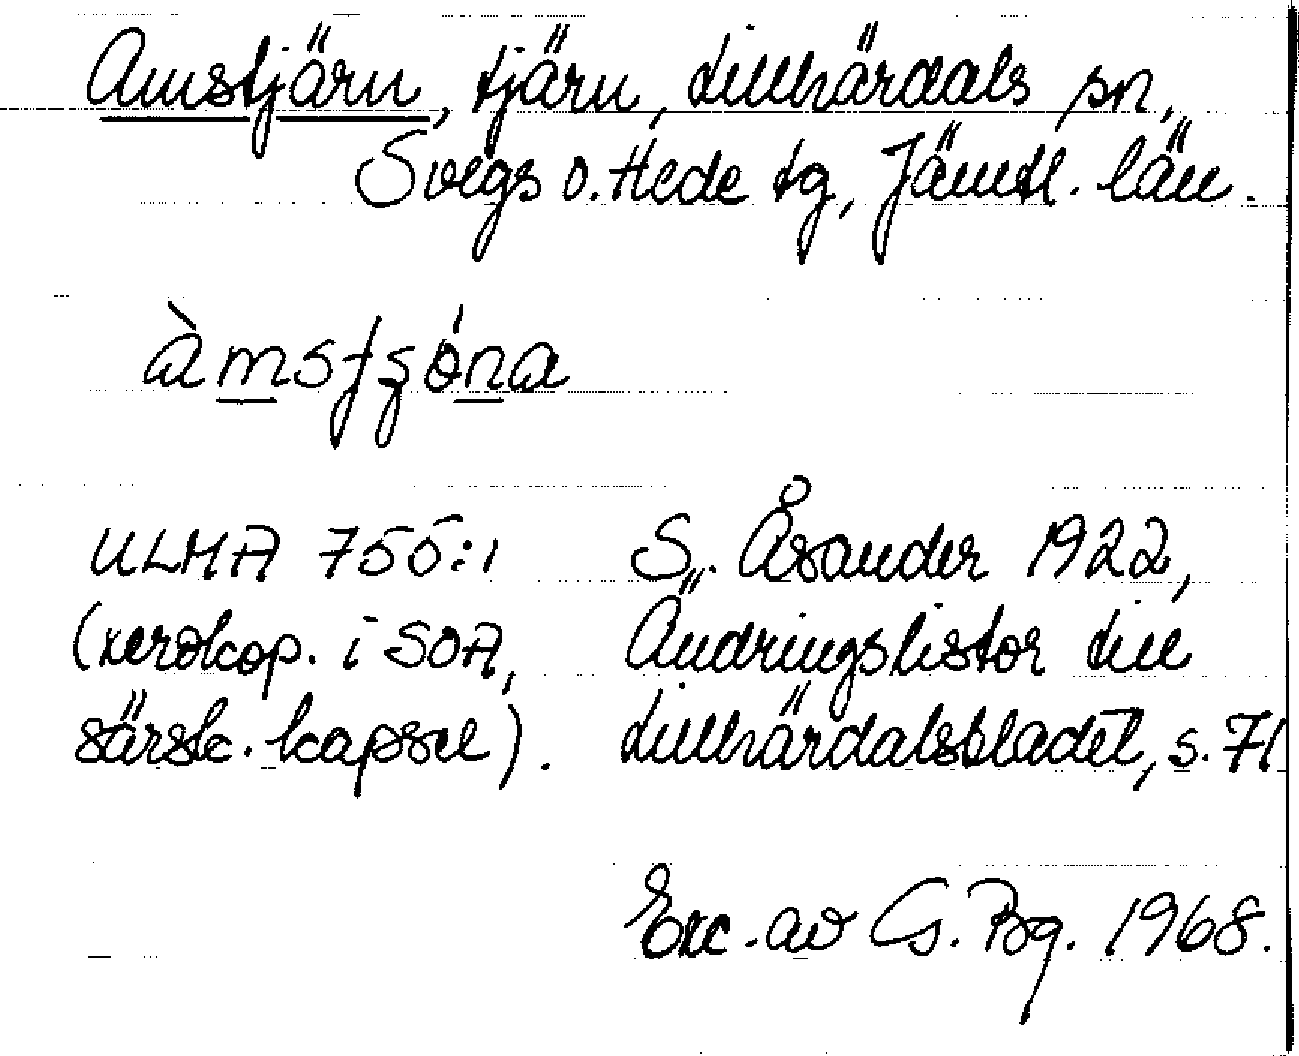 Amstjärn, tjärn, Lillhärdals sn,
Svegs o. Hede tg, Jämtl. län.
àmsʃʂóna
ULMA 755:1 S. Åsander 1922,
(xerokop. i SOA, Ändringslistor till
särsk. kapsel). Lillhärdalsbladet, s. 71
Exc. av G. Bg. 1968.